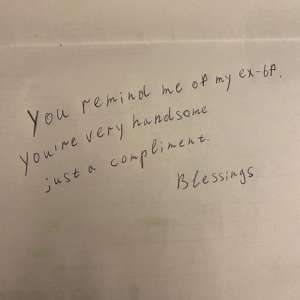 You remind me of my ex-bf.
You're very handsome
just a compliment.
Blessings